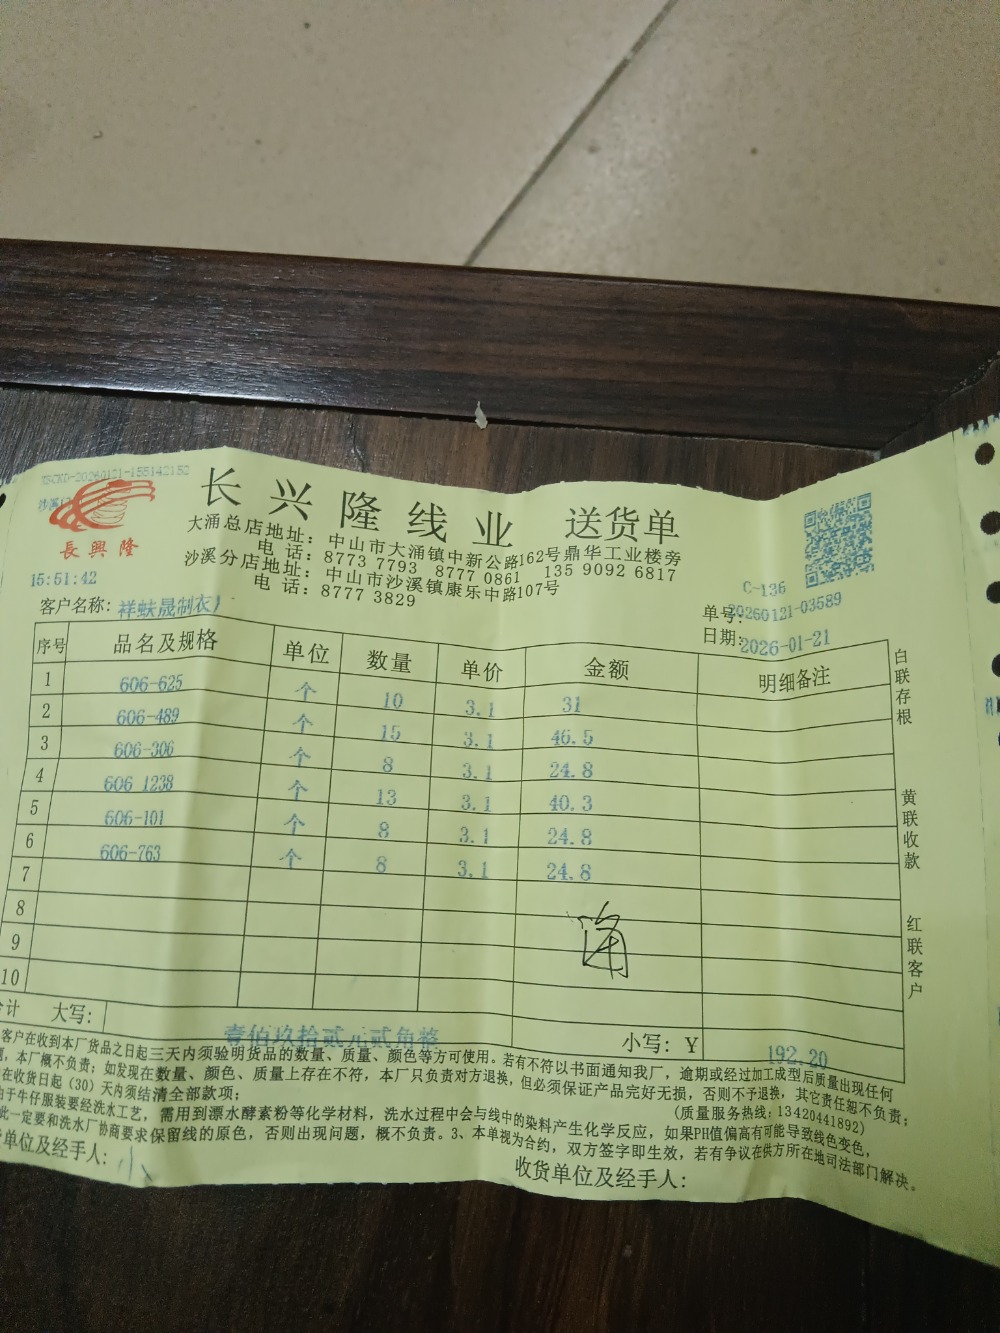 长兴隆线业 送货单
長興隆
大涌总店地址：中山市大涌镇中新公路162号鼎华工业楼旁
电 话：8773 7793 8777 0861 135 9092 6817
沙溪分店地址：中山市沙溪镇康乐中路107号
电 话：8777 3829
15:51:42
C-136
单号:20260121-03589
客户名称:
日期:2026-01-21
序号 品名及规格 单位 数量 单价 金额 明细备注
1 606-625 个 10 3.1 31
2 606-489 个 15 3.1 46.5
3 606-306 个 8 3.1 24.8
4 606 1238 个 13 3.1 40.3
5 606-101 个 8 3.1 24.8
6 606-763 个 8 3.1 24.8
7
8
9
10
计 大写: 壹佰玖拾贰元贰角整 小写: ¥ 192.20
白联存根
黄联收款
红联客户
客户在收到本厂货品之日起三天内须验明货品的数量、质量、颜色等方可使用。若有不符以书面通知我厂，逾期或经过加工成型后质量出现任何
本厂概不负责；如发现在数量、颜色、质量上存在不符，本厂只负责对方退换，但必须保证产品完好无损，否则不予退换，其它责任恕不负责；
在收货日起（30）天内须结清全部款项；
（质量服务热线：13420441892）
于牛仔服装要经洗水工艺，需用到漂水酵素粉等化学材料，洗水过程中会与线中的染料产生化学反应，如果PH值偏高有可能导致线色变色，
此一定要和洗水厂协商要求保留线的原色，否则出现问题，概不负责。3、本单视为合约，双方签字即生效，若有争议在供方所在地司法部门解决。
单位及经手人:
收货单位及经手人: